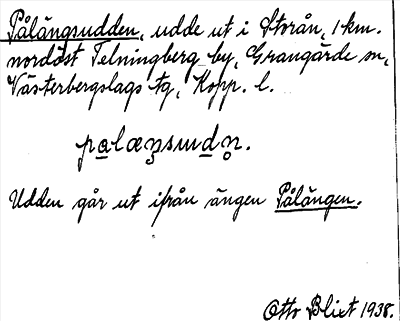 Pålängsudden, udde ut i Storån, 1 km.
nordöst Telningberg by, Grangärde sn,
Västerbergslags tg, Kopp. l.
Udden går ut ifrån ängen Pålängen.
Otto Blixt 1938.